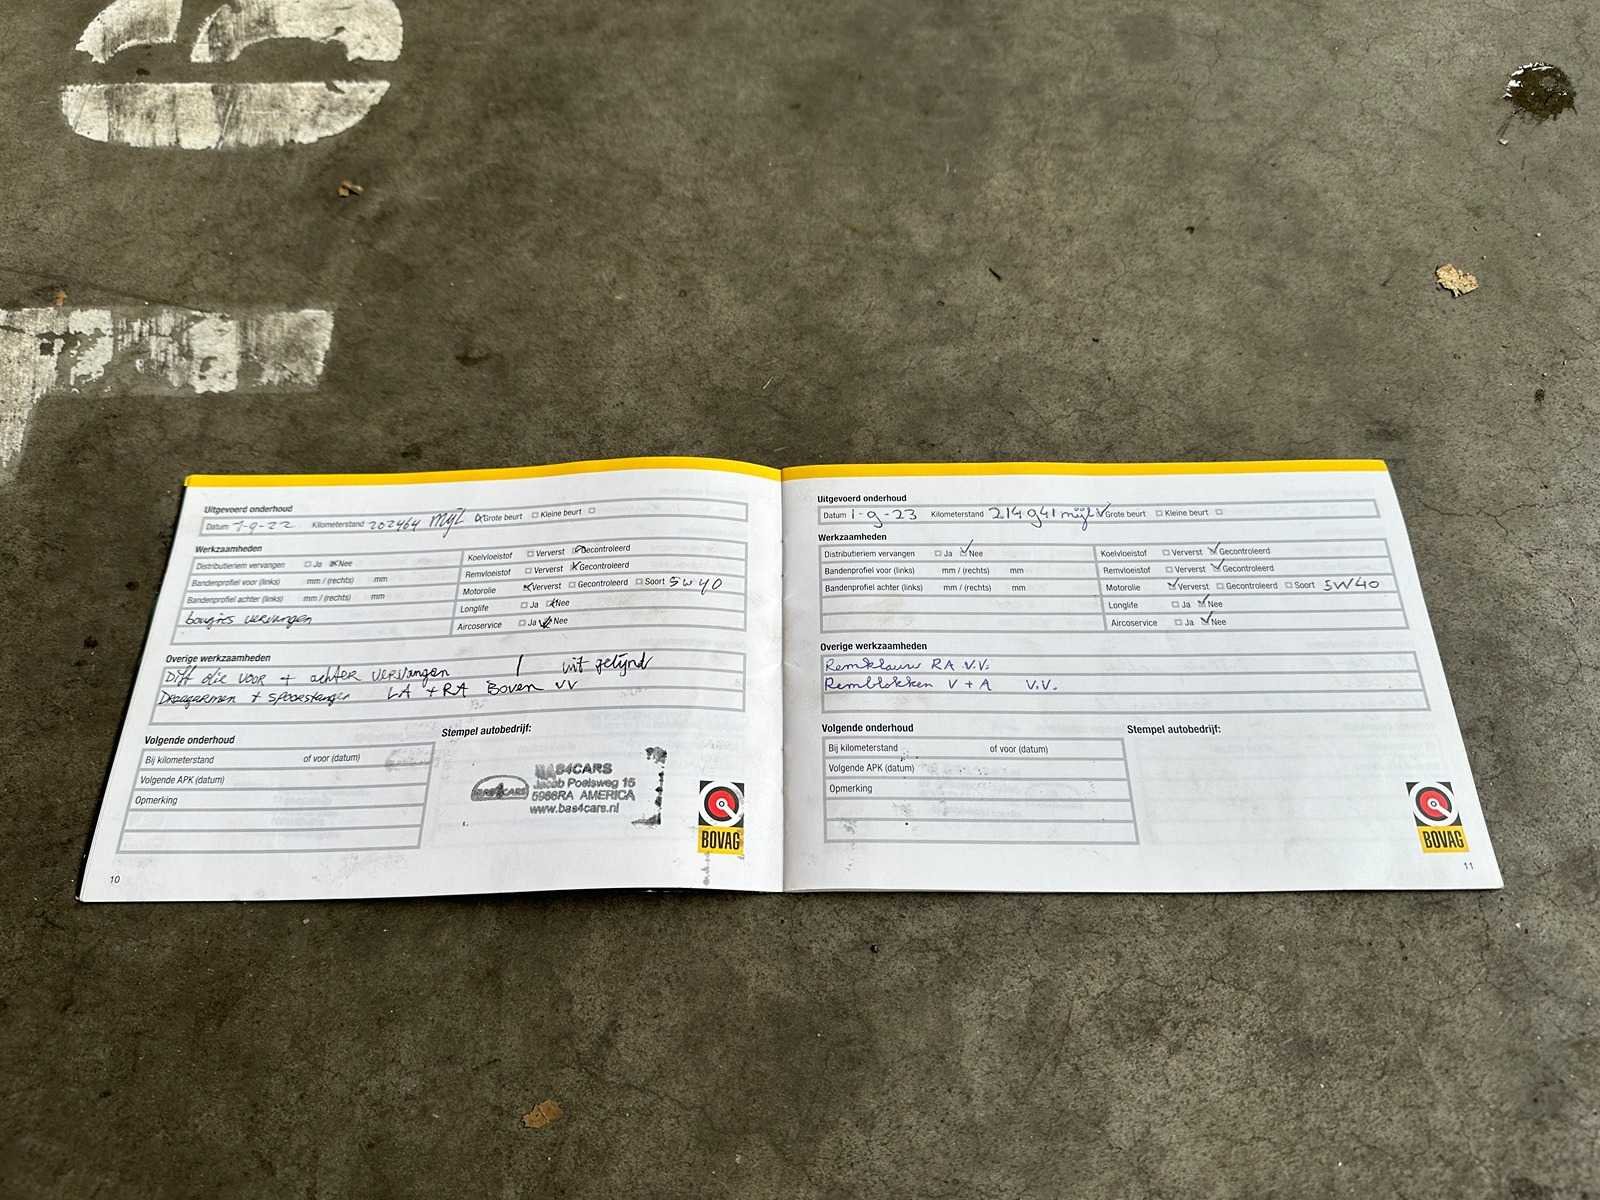 Uitgevoerd onderhoud
Datum 1-9-22 Kilometerstand 202464 Mijl Grote beurt Kleine beurt
Werkzaamheden
Distributieriem vervangen Ja Nee
Bandenprofiel voor (links) mm / (rechts) mm
Bandenprofiel achter (links) mm / (rechts) mm
bougies vervangen
Koelvloeistof Ververst Gecontroleerd
Remvloeistof Ververst Gecontroleerd
Motorolie Ververst Gecontroleerd Soort 5W40
Longlife Ja Nee
Aircoservice Ja Nee
Overige werkzaamheden
Diff olie voor + achter vervangen / uit gelijnd
Draagarmen + spoorstangen LA + RA Boven VV
Volgende onderhoud
Bij kilometerstand of voor (datum)
Volgende APK (datum)
Opmerking
Stempel autobedrijf:
BAS4CARS
BAS4CARS
Jacob Poelsweg 15
5966RA AMERICA
www.bas4cars.nl
BOVAG
10
Uitgevoerd onderhoud
Datum 1-9-23 Kilometerstand 214941 mijl Grote beurt Kleine beurt
Werkzaamheden
Distributieriem vervangen Ja Nee
Bandenprofiel voor (links) mm / (rechts) mm
Bandenprofiel achter (links) mm / (rechts) mm
Koelvloeistof Ververst Gecontroleerd
Remvloeistof Ververst Gecontroleerd
Motorolie Ververst Gecontroleerd Soort 5W40
Longlife Ja Nee
Aircoservice Ja Nee
Overige werkzaamheden
Remklauw RA V.V.
Remblokken V + A V.V.
Volgende onderhoud
Bij kilometerstand of voor (datum)
Volgende APK (datum)
Opmerking
Stempel autobedrijf:
BOVAG
11